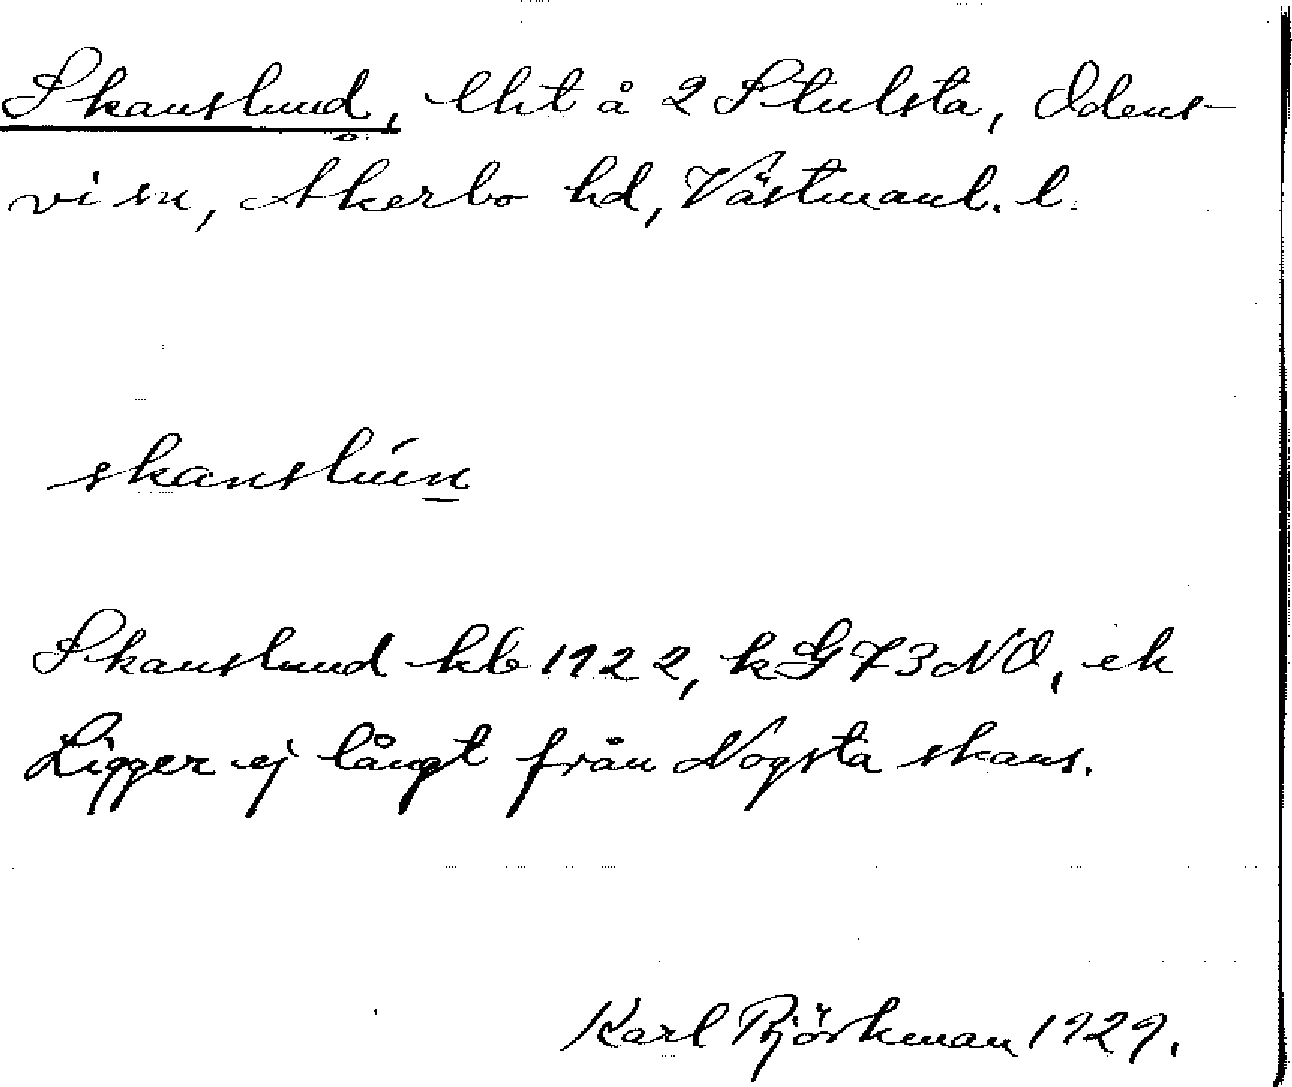 Skanslund, lht å 2 Stulsta, Odens-
vi sn, Åkerbo hd, Västmanl. l.
skanslún
Skanslund kb 1922, k G 73 NO, ek
Ligger ej långt från Nogsta skans.
Karl Björkman 1929.